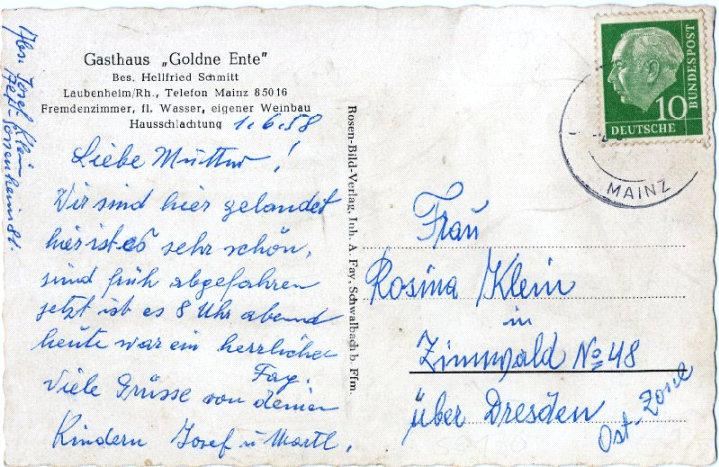 Gasthaus „Goldne Ente"
Bes. Hellfried Schmitt
Laubenheim/Rh., Telefon Mainz 85016
Fremdenzimmer, fl. Wasser, eigener Weinbau
Hausschlachtung
1.6.58
Liebe Mutter!
Wir sind hier gelandet
hier ist es sehr schön,
sind früh abgefahren
jetzt ist es 8 Uhr abend
heute war ein herrlicher
Tag.
Viele Grüsse von deinen
Kindern Josef u Martl.
Abs. Josef Klein
Rosen-Bild-Verlag, Inh. A. Fay, Schwalbach b. Ffm.
10
DEUTSCHE
BUNDESPOST
MAINZ
Frau
Rosina Klein
in
Zinnwald No 48
über Dresden
Ost-Zone